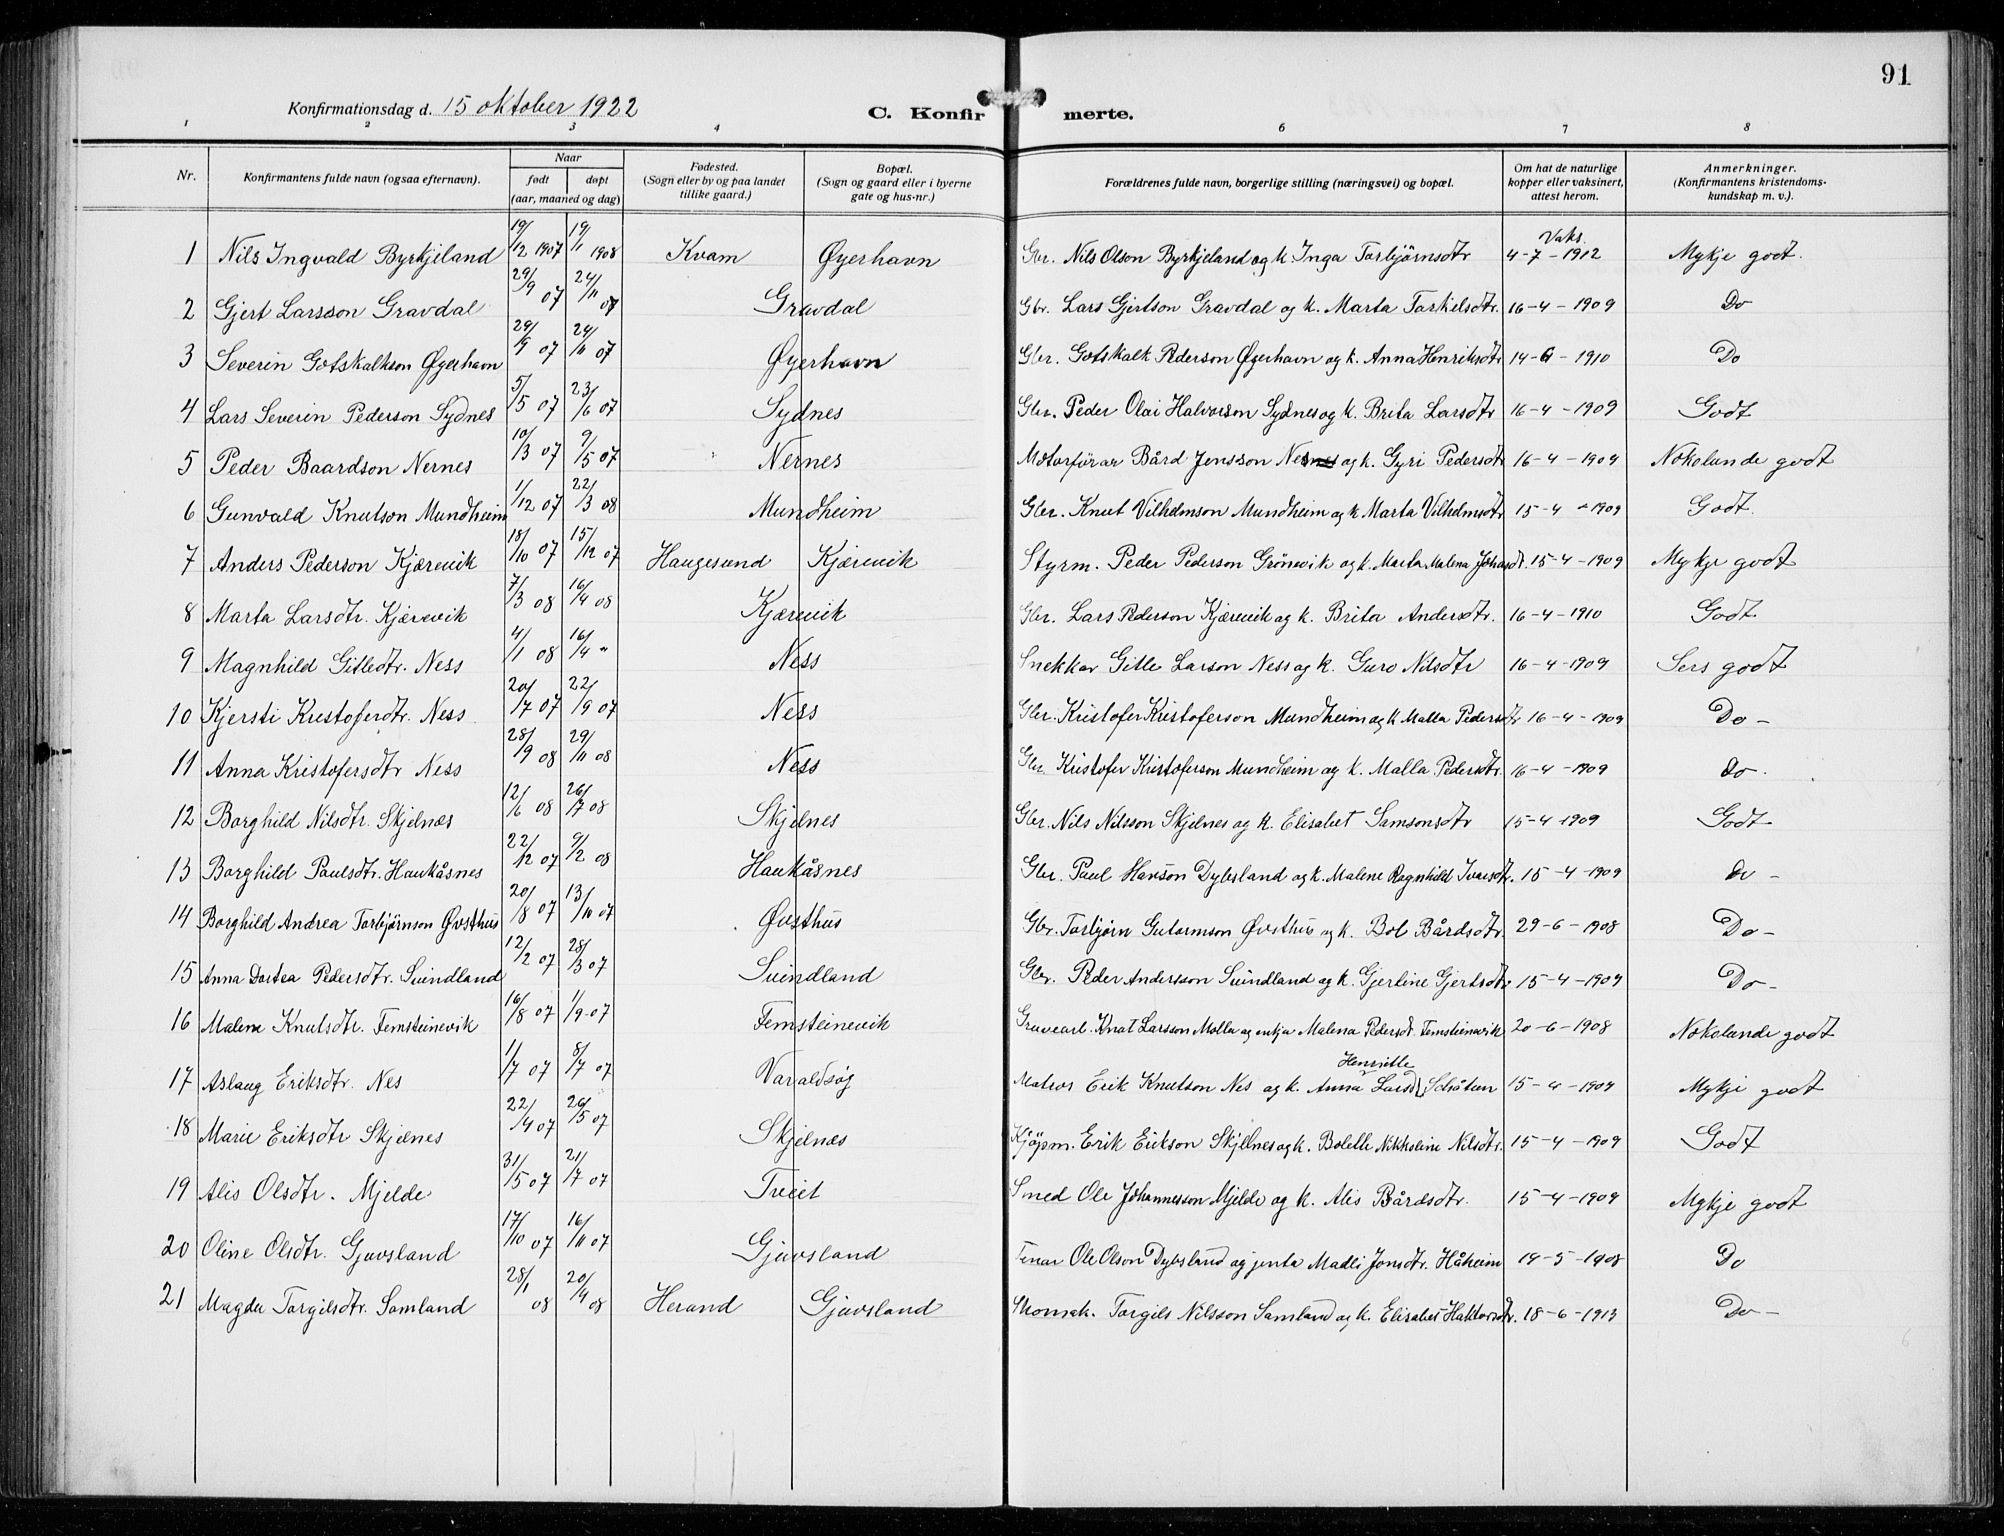 91
Konfirmationsdag d. 15 oktober 1922
C. Konfirmerte.
1 2 3 4 6 7 8
Nr. Konfirmantens fulde navn (ogsaa efternavn). Naar født døpt (aar, maaned og dag) Fødested. (Sogn eller by og paa landet tillike gaard.) Bopæl. (Sogn og gaard eller i byerne gate og hus-nr.) Forældrenes fulde navn, borgerlige stilling (næringsvei) og bopæl. Om hat de naturlige kopper eller vaksinert, attest herom. Anmerkninger. (Konfirmantens kristendomskundskap m. v.).
1 Nils Ingvald Byrkjeland 19/12 1907 19/1 1908 Kvam Øyerhavn Gbr. Nils Olson Byrkjeland og k. Inga Torbjørnsdtr Vaks. 4-7-1912 Mykje godt.
2 Gjert Larsson Gravdal 29/9 07 24/11 07 Gravdal Gbr. Lars Gjertson Gravdal og k. Marta Torkelsdtr. 16-4-1909 Do
3 Severin Gotskalkson Øyerhavn 29/9 07 24/11 07 Øyerhavn Gbr. Gotskalk Pederson Øyerhavn og k. Anna Henriksdtr 14-6-1910 Do
4 Lars Severin Pederson Sydnes 5/5 07 23/6 07 Sydnes Gbr. Peder Olai Halvorson Sydnes og k. Brita Larsdtr 16-4-1909 Godt
5 Peder Baardson Nernes 10/3 07 9/5 07 Nernes Motorførar Bård Jensson og k. Gyri Pedersdtr 16-4-1909 Nokolunde godt
6 Gunvald Knutson Mundheim 1/12 07 22/3 08 Mundheim Gbr. Knut Vilhelmson Mundheim og k. Marta Vilhelmsdtr 15-4-1909 Godt.
7 Anders Pederson Kjærevik 18/10 07 15/12 07 Haugesund Kjærevik Styrm. Peder Pederson Grönevik og k. Marta Malena 15-4-1909 Mykje godt
8 Marta Larsdtr. Kjærevik 7/3 08 16/4 08 Kjærevik Gbr. Lars Pederson Kjærevik og k. Brita Andersdtr. 16-4-1910 Godt
9 Magnhild Gitledtr. Ness 4/1 08 16/4 " Ness Snekkar Gitle Larson Ness og k. Guro Nilsdtr 16-4-1909 Sers godt
10 Kjersti Kristoferdtr. Ness 20/7 07 22/9 07 Ness Gbr. Kristofer Kristoferson Mundheim og k. Malla Pedersdtr 16-4-1909 Do -
11 Anna Kristofersdtr Ness 28/9 08 29/11 08 Ness Gbr Kristofer Kristoferson Mundheim og k. Malla Pedersdtr. 16-4-1909 do.
12 Borghild Nilsdtr. Skjelnes 12/6 08 26/7 08 Skjelnes Gbr. Nils Nilsson Skjelnes og k. Elisabet Samsonsdtr 15-4-1909 Godt
13 Borghild Paulsdtr. Haukåsnes 22/12 07 9/2 08 Haukåsnes Gbr. Paul Hanson Dybsland og k. Malene Ragnhild Ivarsdtr. 15-4-1909 do -
14 Borghild Andrea Torbjørnson Øvsthus 20/8 07 13/10 07 Øvsthus Gbr. Torbjørn Gutormson Øvsthus og k. Bol Bårdsdtr. 29-6-1908 Do -
15 Anna Dortea Pedersdtr. Suindland 12/2 07 28/3 07 Suindland Gbr. Peder Andersson Suindland og k. Gjerline Gjertsdtr. 15-4-1909 Do -
16 Malena Knutsdtr. Femsteinevik 16/8 07 1/9-07 Femsteinevik Gruvearb. Knut Larsson Molla og enkja Malena Pedersdt. Femsteinevik 20-6-1908 Nokolunde godt
17 Aslaug Eriksdtr. Nes 1/7 07 8/7 07 Varaldsøy Matros Erik Knutson Nes og k. Anna Henriette Larsd 15-4-1909 Mykje godt
18 Marie Eriksdtr Skjelnes 22/4 07 26/5 07 Skjelnes Kjøpm. Erik Erikson Skjelnes og k. Bolette Nikkoline Nilsdtr. 15-4-1909 Godt
19 Alis Olsdtr. Mjelde 31/5 07 21/7 07 Tveit Smed Ole Johannesson Mjelde og k. Alis Bårdsdtr. 15-4-1909 Mykje godt
20 Oline Olsdtr. Gjuvsland 17/10 07 16/11 07 Gjuvsland Tenar Ole Olson Dybsland og jenta Madli Jonsdtr. Håheim 19-5-1908 Do
21 Magda Torgilsdtr. Samland 28/1 08 20/4 08 Herand Gjuvsland Skomak. Torgils Nilsson Samland og k. Elisabet Haktorsdtr. 18-6-1913 Do -